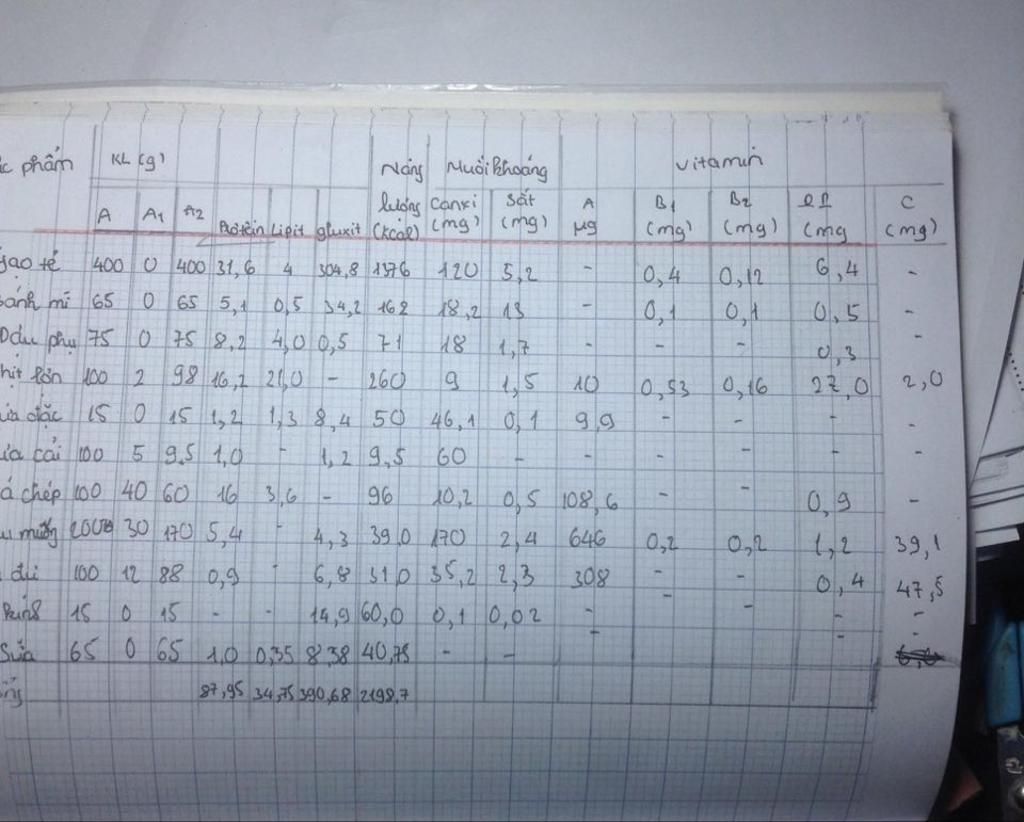 phẩm KL (g) Năng Muối khoáng Vitamin
A A1 A2 Protêin Lipit gluxit lượng (kcal) canxi (mg) Sắt (mg) A µg B1 (mg) B2 (mg) PP mg C (mg)
gạo tẻ 400 0 400 31,6 4 304,8 1376 120 5,2 - 0,4 0,12 6,4 -
bánh mì 65 0 65 5,1 0,5 34,2 162 18,2 13 - 0,1 0,1 0,5 -
Đậu phụ 75 0 75 8,2 4,0 0,5 71 18 1,7 - - - 0,3 -
hịt lợn 100 2 98 16,2 21,0 - 260 9 1,5 10 0,53 0,16 27,0 2,0
ữa đặc 15 0 15 1,2 1,3 8,4 50 46,1 0,1 9,9 - - - -
ưa cải 100 5 9,5 1,0 - 1,2 9,5 60 - - - - - -
á chép 100 40 60 16 3,6 - 96 10,2 0,5 108,6 - - 0,9 -
muống 30 170 5,4 - 4,3 39,0 170 2,4 646 0,2 0,2 1,2 39,1
đủ 100 12 88 0,9 - 6,8 31,0 35,2 2,3 308 - - 0,4 47,5
15 0 15 - - 14,9 60,0 0,1 0,02 - - - - -
Sữa 65 0 65 1,0 0,35 8,38 40,75 - - - - -
87,95 34,75 390,68 2198,7